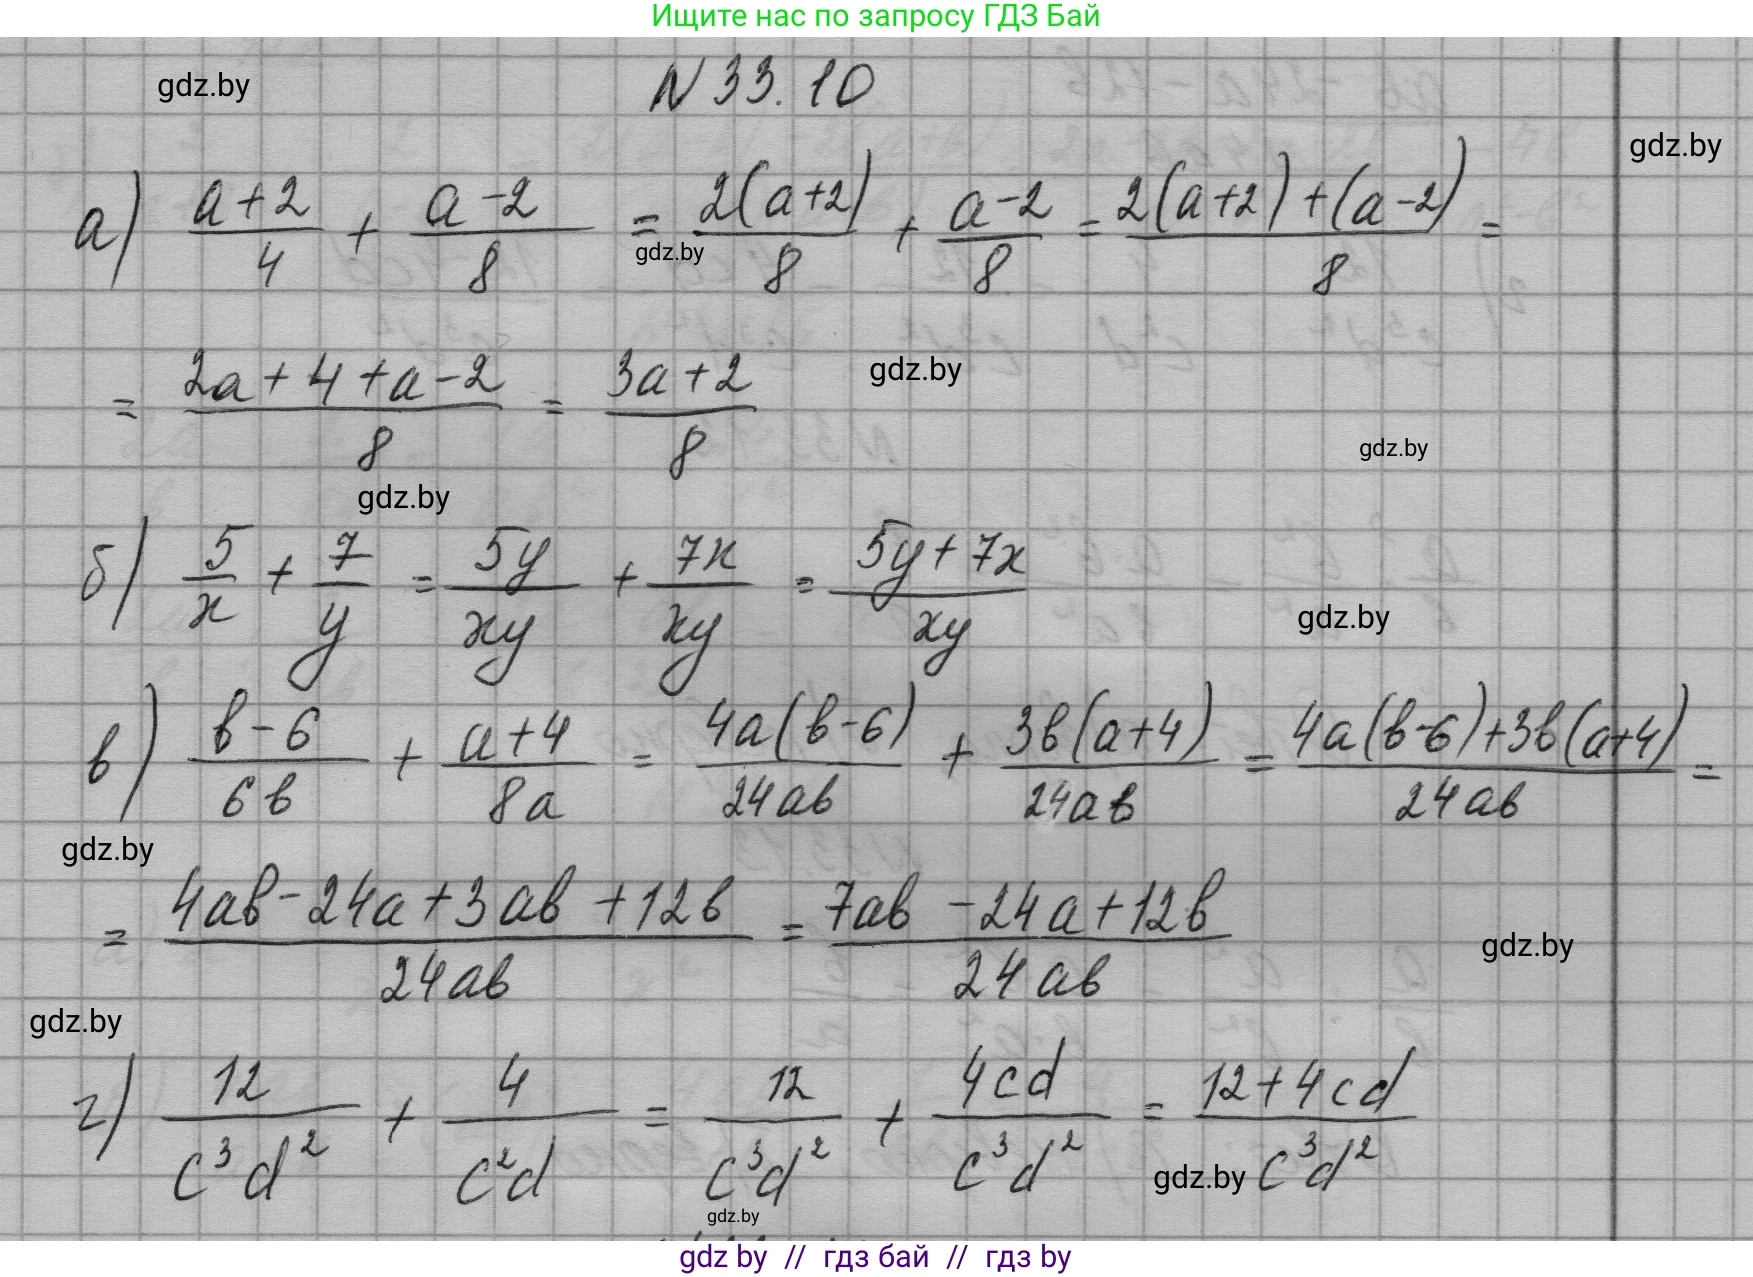 Ищите нас по запросу ГДЗ Бай
gdz.by
N 33.10
gdz.by
а) (a+2)/4 + (a-2)/8 = 2(a+2)/8 + (a-2)/8 = (2(a+2)+(a-2))/8 =
gdz.by
= (2a+4+a-2)/8 = (3a+2)/8
gdz.by
gdz.by
gdz.by
б) 5/x + 7/y = 5y/xy + 7x/xy = (5y+7x)/xy
gdz.by
в) (в-6)/6в + (a+4)/8a = 4a(в-6)/24aв + 3в(a+4)/24aв = (4a(в-6)+3в(a+4))/24aв =
gdz.by
= (4aв-24a+3aв+12в)/24aв = (7aв-24a+12в)/24aв
gdz.by
gdz.by
г) 12/c³d² + 4/c²d = 12/c³d² + 4cd/c³d² = (12+4cd)/c³d²
gdz.by
gdz.by
gdz by // гдз бай // гдз by